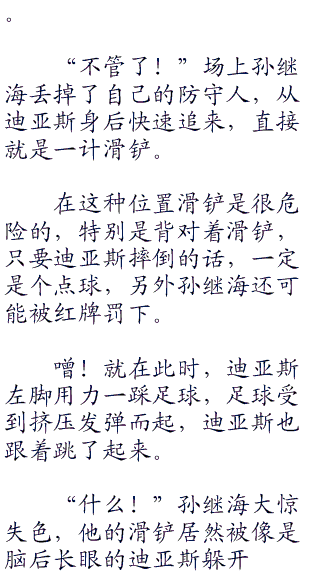 。
“不管了！”场上孙继
海丢掉了自己的防守人，从
迪亚斯身后快速追来，直接
就是一计滑铲。
在这种位置滑铲是很危
险的，特别是背对着滑铲，
只要迪亚斯摔倒的话，一定
是个点球，另外孙继海还可
能被红牌罚下。
噌！就在此时，迪亚斯
左脚用力一踩足球，足球受
到挤压发弹而起，迪亚斯也
跟着跳了起来。
“什么！”孙继海大惊
失色，他的滑铲居然被像是
脑后长眼的迪亚斯躲开